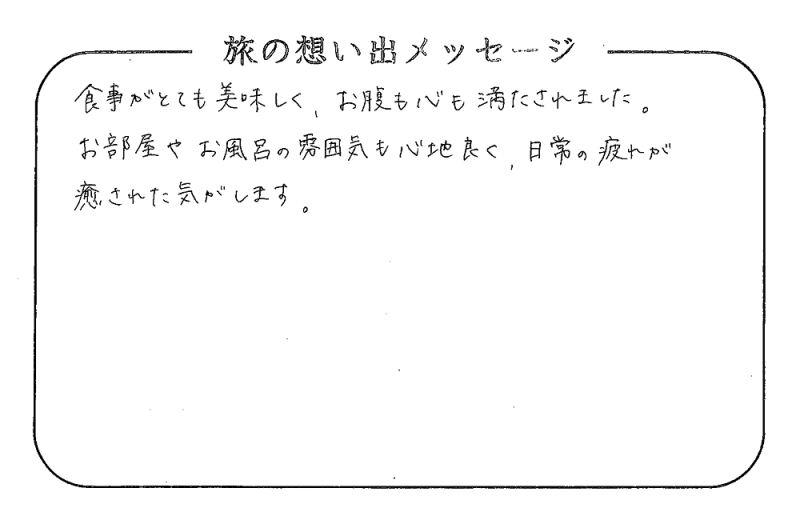 旅の想い出メッセージ
食事がとても美味しく、お腹も心も満たされました。
お部屋やお風呂の雰囲気も心地良く、日常の疲れが
癒された気がします。